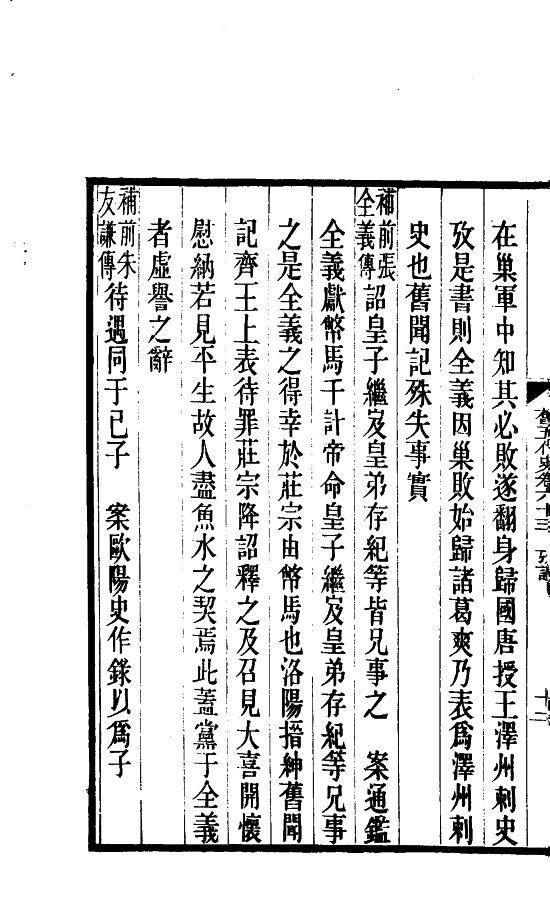 在巢軍中知其必敗遂翻身歸國唐授王澤州刺史
攷是書則全義因巢敗始歸諸葛爽乃表爲澤州刺
史也舊聞記殊失事實
補前張全義傳 詔皇子繼岌皇弟存紀等皆兄事之 案通鑑
全義獻幣馬千計帝命皇子繼岌皇弟存紀等兄事
之是全義之得幸於莊宗由幣馬也洛陽搢紳舊聞
記齊王上表待罪莊宗降詔釋之及召見大喜開懷
慰納若見平生故人盡魚水之契焉此蓋黨于全義
者虛譽之辭
補前朱友謙傳 待遇同于己子 案歐陽史作錄以爲子